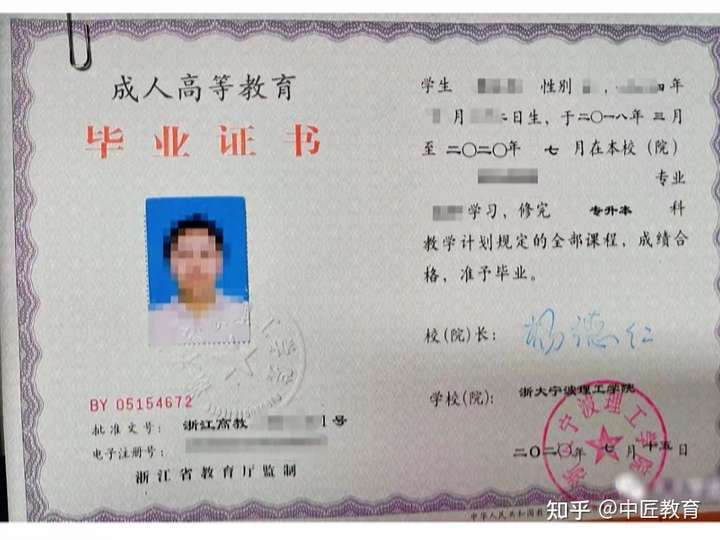 成人高等教育
毕业证书
BY 05154672
批准文号: 浙江高教 1号
电子注册号:
浙江省教育厅监制
学生 性别 , 四年
月 二日生, 于二〇一八年 三月
至 二〇二〇年 七 月在本校 (院)
专业
学习, 修完 专升本 科
教学计划规定的全部课程, 成绩合
格, 准予毕业。
校(院)长: 杨德仁
学校(院): 浙大宁波理工学院
二〇二〇年 七 月 十五 日
宁波理工学院
中华人民共和国教
知乎 @中匠教育